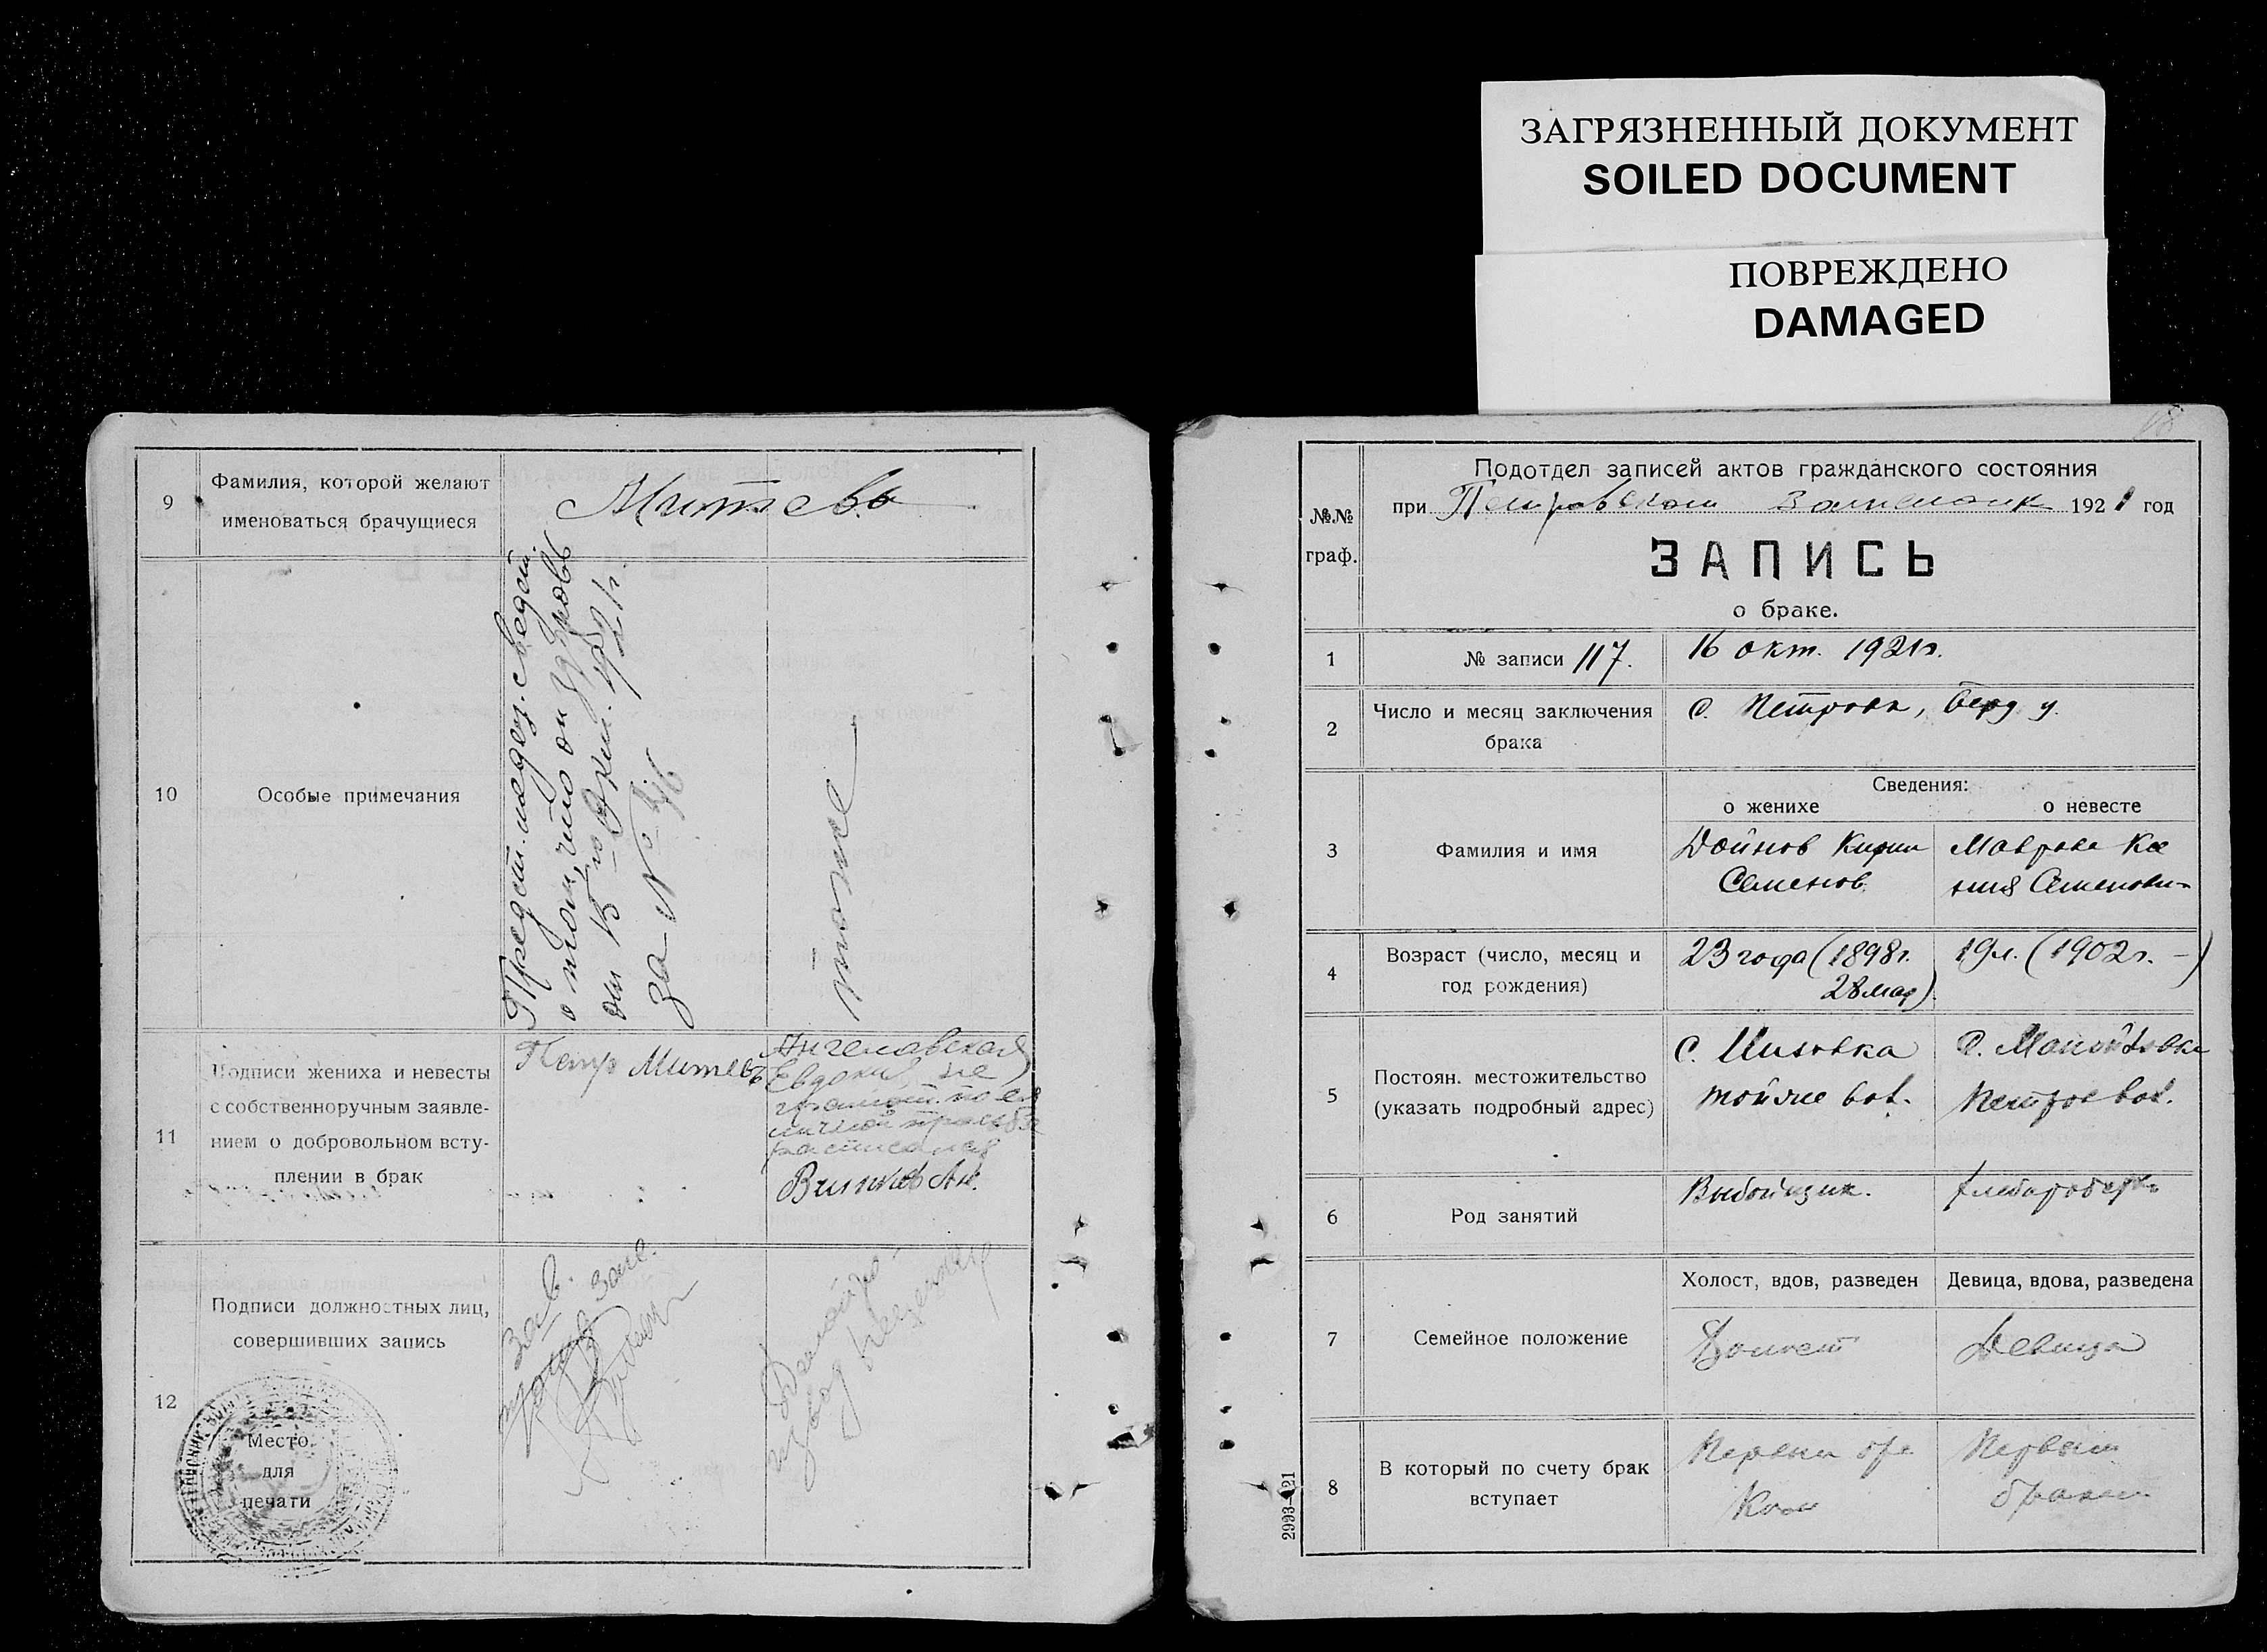 ЗАГРЯЗНЕННЫЙ ДОКУМЕНТ
SOILED DOCUMENT
ПОВРЕЖДЕНО
DAMAGED
9
Фамилия, которой желают
именоваться брачущиеся
Митевъ
10
Особые примечания
Предст. медез. сведет.
о том, что он здоровъ
от 15 го Окт. 1921 г.
за №
тоже
11
Подписи жениха и невесты
с собственноручным заявле-
нием о добровольном всту-
плении в брак
Петр Митевъ
Ангелавская
Евдокия, не
грамот. по ея
личной просьбе
расписался
12
Подписи должностных лиц,
совершивших запись
Зав.
Место
для
печати
№№
граф.
Подотдел записей актов гражданского состояния
при Петровском Волисполк 1921 год
ЗАПИСЬ
о браке.
1
№ записи 117.
16 окт. 1921г.
2
Число и месяц заключения
брака
с. Петровк, Берд у.
3
Фамилия и имя
Сведения:
о женихе
о невесте
Дойнов Кирил
Семенов.
Маврова Ксе
ния Семеновн
4
Возраст (число, месяц и
год рождения)
23 года (1898г.
28 мая)
19 л. (1902г. –)
5
Постоян. местожительство
(указать подробный адрес)
с.
вол.
с. Манойловка
Петров вол.
6
Род занятий
Выбойщик.
хлебороб
7
Семейное положение
Холост, вдов, разведен
Девица, вдова, разведена
Холост
Девица
8
В который по счету брак
вступает
Первым бра
ком
Первым
браком
2993–21